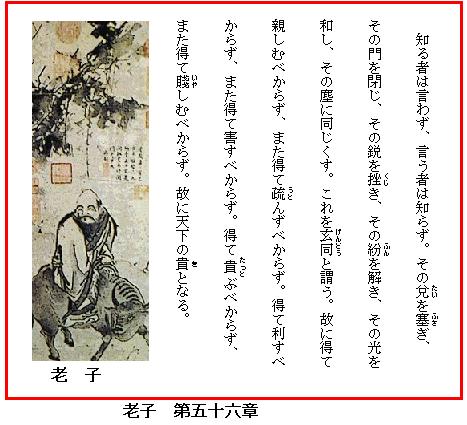 知る者は言わず、言う者は知らず。その兌を塞ぎ、
その門を閉じ、その鋭を挫き、その紛を解き、その光を
和し、その塵に同じくす。これを玄同と謂う。故に得て
親しむべからず、また得て疏んずべからず。得て利すべ
からず、また得て害すべからず。得て貴ぶべからず、
また得て賤しむべからず。故に天下の貴となる。
老子
老子 第五十六章